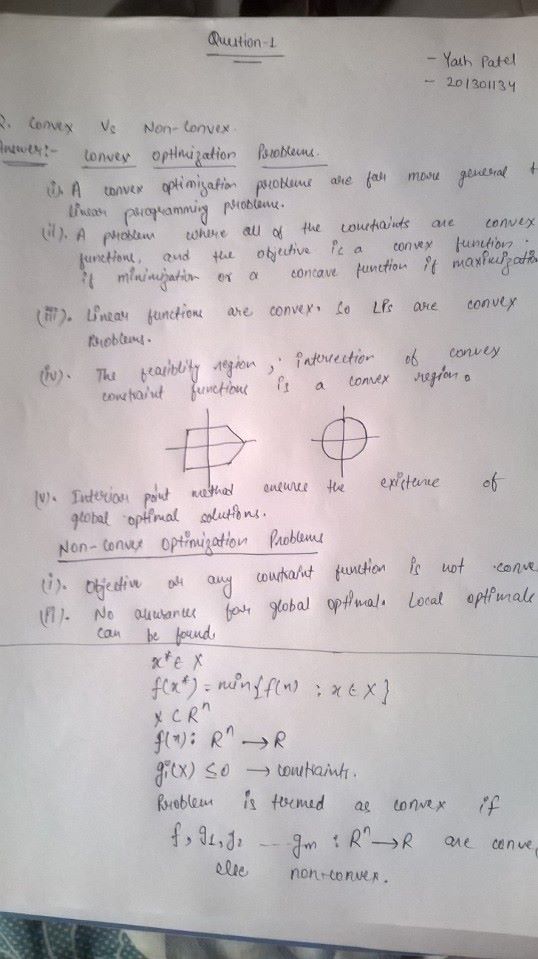 Question-1
- Yash Patel
- 201301134
Q. Convex Vs Non-Convex.
Answer:- Convex Optimization Problems.
(i). A convex optimization problems are far more general t
linear programming problems.
(ii). A problem where all of the constraints are convex
functions, and the objective is a convex function.
if minimization or a concave function if maximization
(iii). Linear functions are convex. So LPs are convex
Problems.
(iv). The feasiblity region, intersection of convex
constraint functions is a convex region.
(v). Interior point method ensures the existence of
global optimal solutions.
Non-Convex Optimization Problems
(i). Objective or any constraint function is not conve
(ii). No assurances for global optimal. Local optimals
can be found.
x* ∈ X
f(x*) = min{f(x) : x ∈ X}
X ⊂ Rⁿ
f(x): Rⁿ → R
gi(x) ≤ 0 → constraints.
Problem is termed as convex if
f, g1, g2 ---- gm : Rⁿ → R are conve
else non-convex.